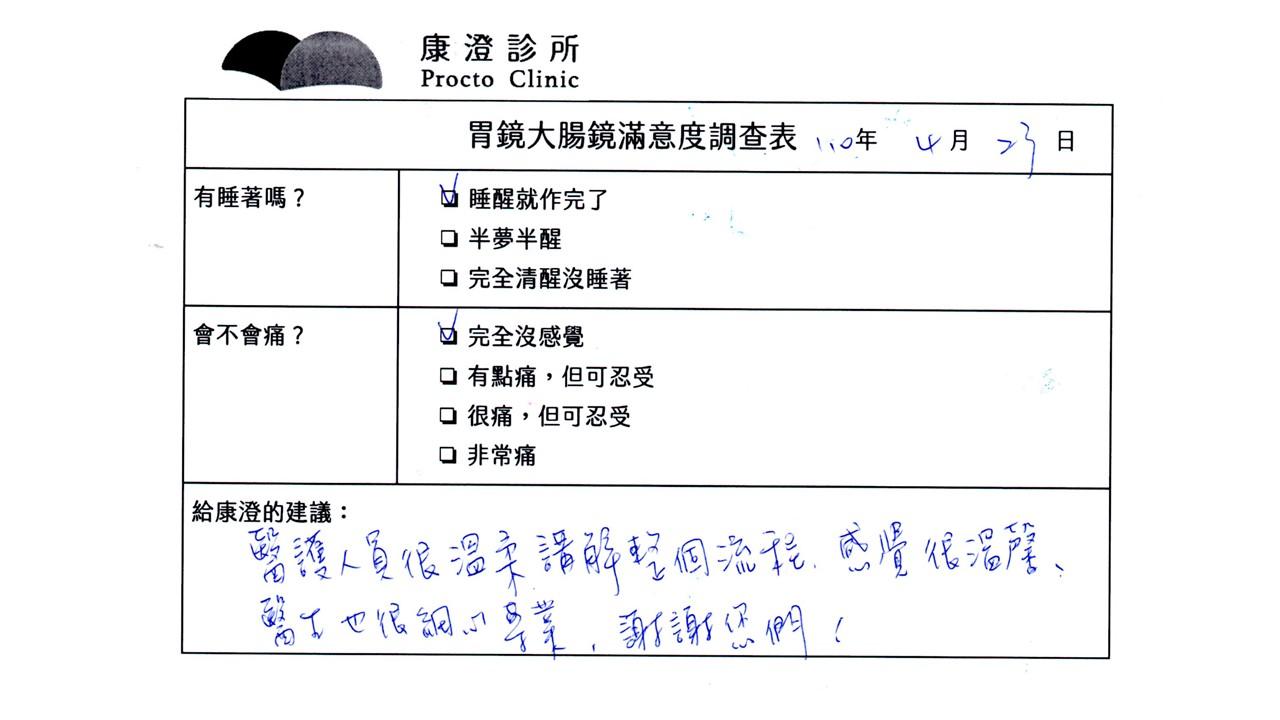 康澄診所
Procto Clinic
胃鏡大腸鏡滿意度調查表 110年 4月 23日
有睡著嗎？
睡醒就作完了
半夢半醒
完全清醒沒睡著
會不會痛？
完全沒感覺
有點痛，但可忍受
很痛，但可忍受
非常痛
給康澄的建議：
醫護人員很溫柔講解整個流程、感覺很溫馨、
醫生也很細心專業，謝謝您們！